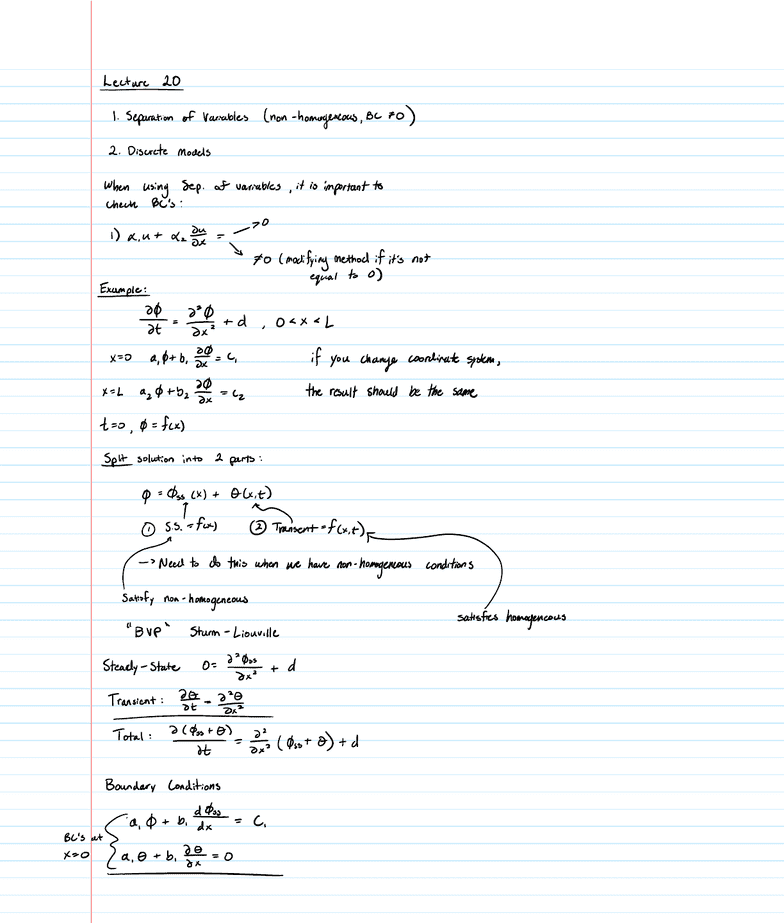 Lecture 20
1. Separation of Variables (non-homogeneous, BC ≠0)
2. Discrete Models
When using Sep. of variables, it is important to
check BC's:
1) α₁u + α₂ ∂u/∂x = → 0
≠0 (modifying method if it's not
equal to 0)
Example:
∂φ/∂t = ∂²φ/∂x² + d , 0<x<L
x=0 a₁φ+b₁ ∂φ/∂x = C₁ if you change coordinate system,
x=L a₂φ+b₂ ∂φ/∂x = C₂ the result should be the same
t=0, φ=f(x)
Split solution into 2 parts:
φ = φss(x) + θ(x,t)
① S.S. = f(x) ② Transient = f(x,t)
→ Need to do this when we have non-homogeneous conditions
Satisfy non-homogeneous
satisfies homogeneous
"BVP" Sturm-Liouville
Steady-State 0= ∂²φss/∂x² + d
Transient: ∂θ/∂t = ∂²θ/∂x²
Total: ∂(φss+θ)/∂t = ∂²/∂x² (φss+θ)+d
Boundary Conditions
a₁φ + b₁ dφss/dx = C₁
BC's at
x=0
a₁θ + b₁ ∂θ/∂x = 0